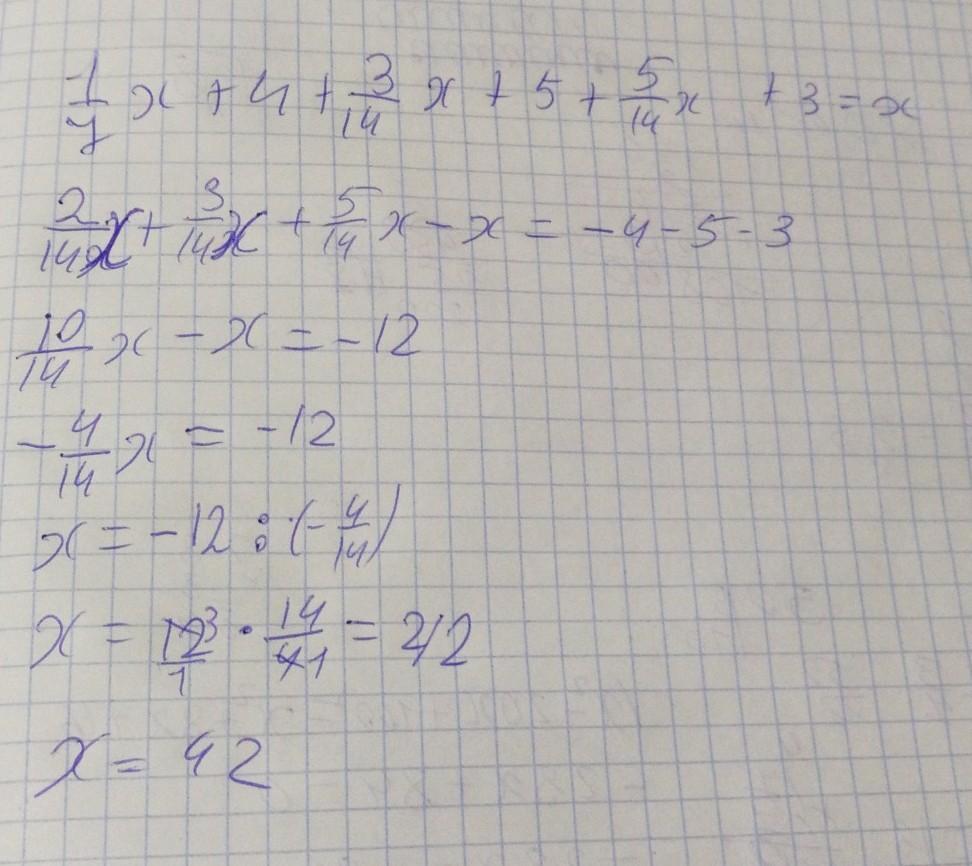 1/7 x + 4 + 3/14 x + 5 + 5/14 x + 3 = x
2/14 x + 3/14 x + 5/14 x - x = -4 - 5 - 3
10/14 x - x = -12
-4/14 x = -12
x = -12 : (-4/14)
x = 12 3/1 · 14/4 1 = 42
x = 42